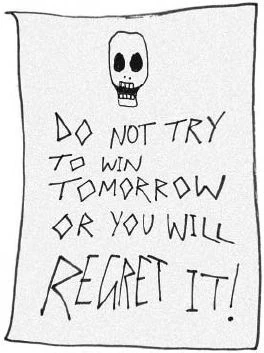 DO NOT TRY
TO WIN
TOMORROW
OR YOU WILL
REGRET IT!